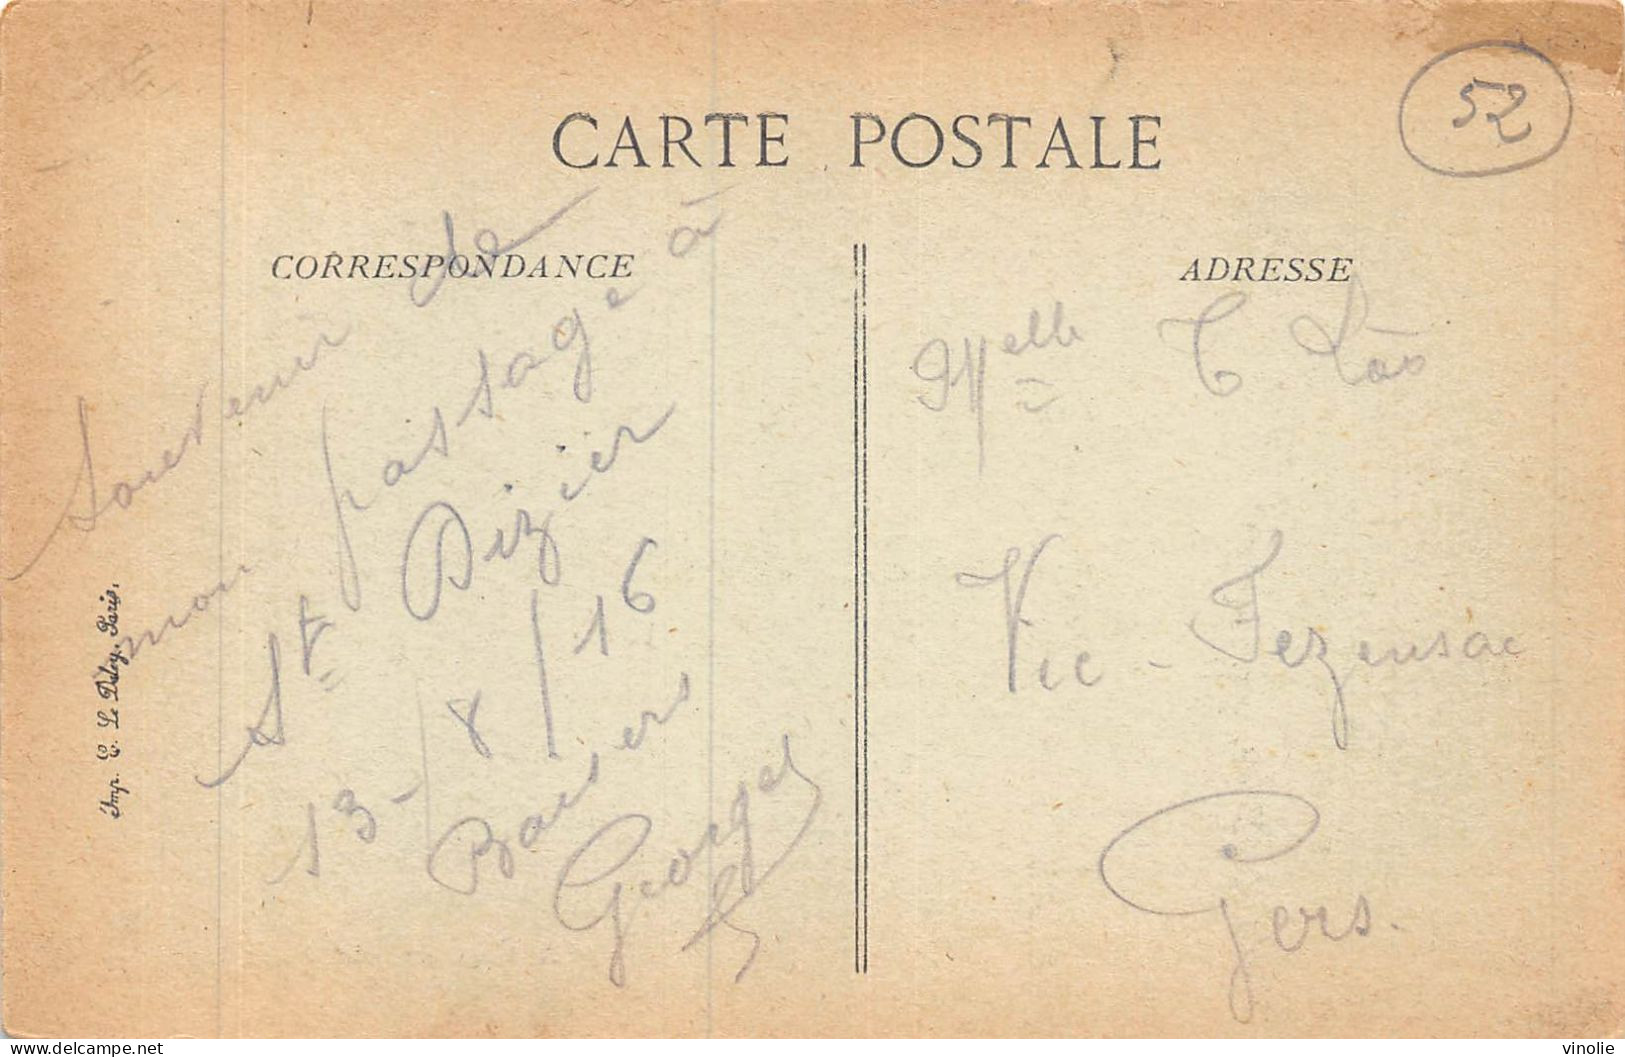 52
CARTE POSTALE
CORRESPONDANCE
Souvenir de
mon passage à
St Dizier
13-/8/16
Baisers
Georges
Imp. E. Le Deley, Paris.
ADRESSE
Melle
Vic-Fezensac
Gers.
delcampe.net
vinolie